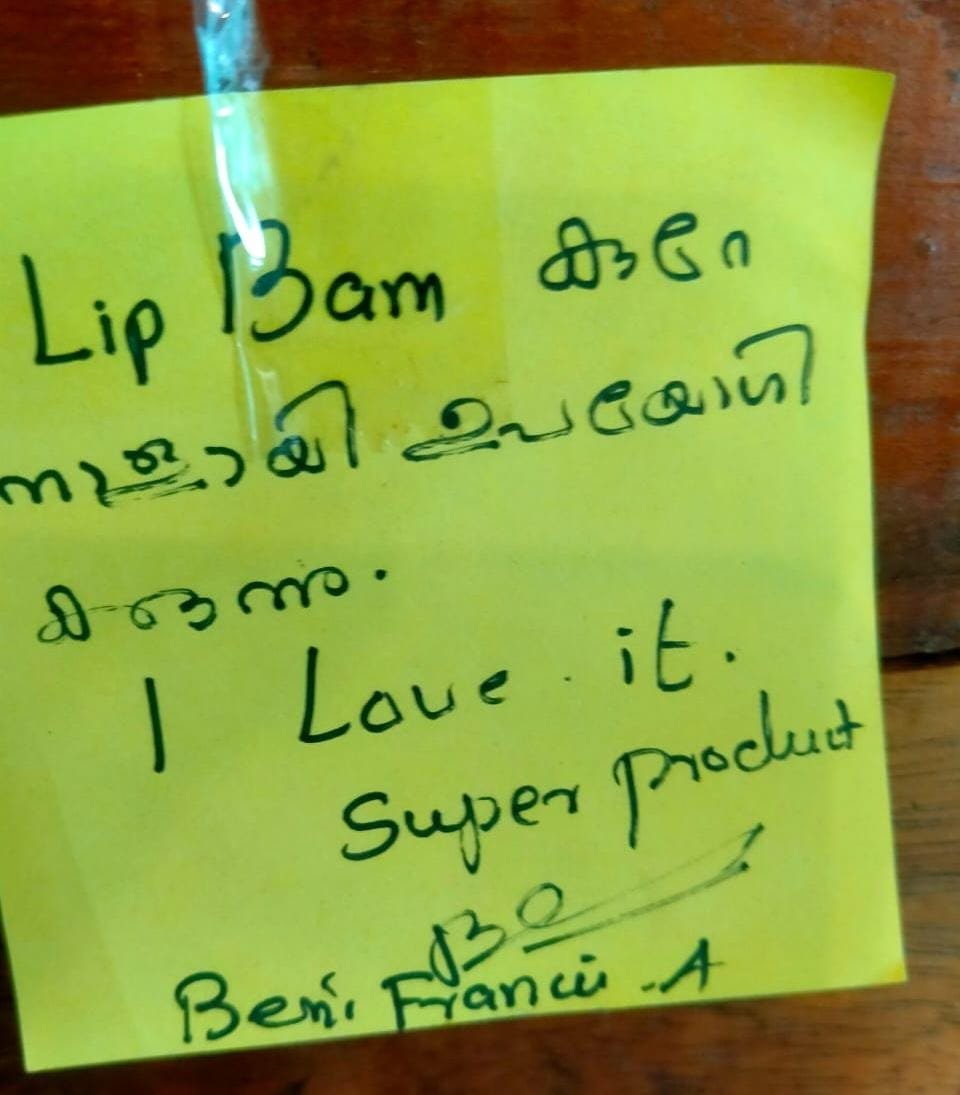 Lip Bam കുറേ
നാളായി ഉപയോഗി
ക്കുന്നു.
I Love it.
Super product
Beni Francis .A